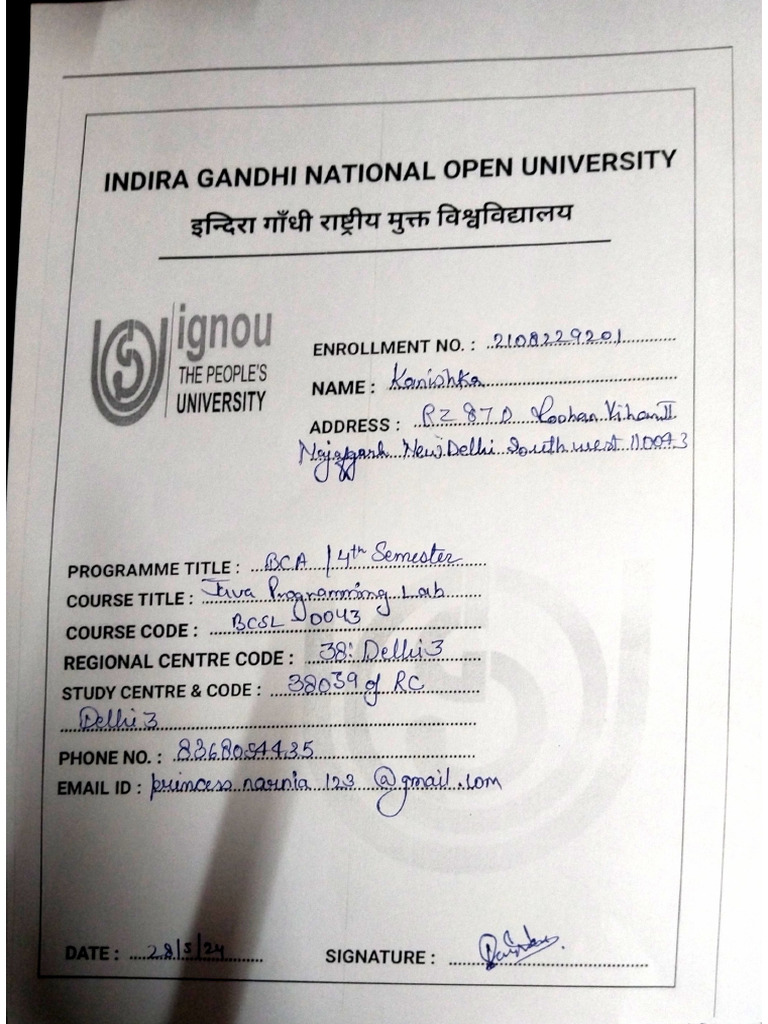 INDIRA GANDHI NATIONAL OPEN UNIVERSITY
इन्दिरा गाँधी राष्ट्रीय मुक्त विश्वविद्यालय
ignou
THE PEOPLE'S
UNIVERSITY
ENROLLMENT NO. : 2108229201
NAME : Kanishka
ADDRESS : RZ 87 D Roshan Vihar II
Najafgarh New Delhi South west 110043
PROGRAMME TITLE : BCA / 4th Semester
COURSE TITLE : Java Programming Lab
COURSE CODE : BCSL - 0043
REGIONAL CENTRE CODE : 38: Delhi 3
STUDY CENTRE & CODE : 38039 of RC
Delhi 3
PHONE NO. : 8368054435
EMAIL ID : princess narnia 123 @gmail.com
DATE : 28/5/24
SIGNATURE :